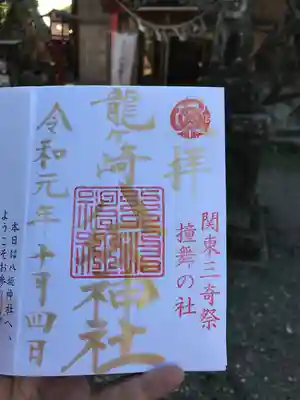 奉拝
関東三奇祭
撞舞の社
龍ケ崎八坂神社
令和元年十月四日
本日は八坂神社へ、
ようこそお参り